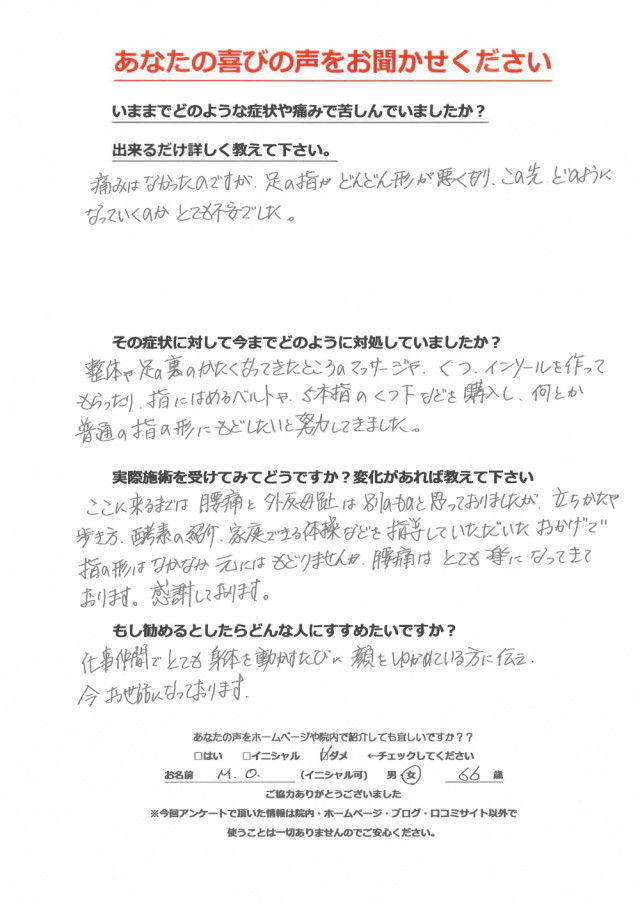 あなたの喜びの声をお聞かせください
いままでどのような症状や痛みで苦しんでいましたか？
出来るだけ詳しく教えて下さい。
痛みはなかったのですが、足の指が どんどん形が悪くなり、この先 どのように
なっていくのか とても不安でした。
その症状に対して今までどのように対処していましたか？
整体や足の裏のかたくなってきたところのマッサージや、くつ、インソールを作って
もらったり、指にはめるベルトや、5本指のくつ下などを購入し、何とか
普通の指の形にもどしたいと努力してきました。
実際施術を受けてみてどうですか？変化があれば教えて下さい
ここに来るまでは 腰痛と 外反母趾は 別ものと思っておりましたが、立ちかたや
歩き方、酵素の紹介、家庭でできる体操などを指導していただいた おかげで
指の形はなかなか 元には もどりませんが、腰痛は とても 楽に なってきて
おります。感謝しております。
もし勧めるとしたらどんな人にすすめたいですか？
仕事仲間でとても 身体を動かすたびに 顔をゆがめている方に伝え、
今 お世話になっております。
あなたの声をホームページや院内で紹介しても宜しいですか？？
□はい □イニシャル ☑ダメ ←チェックしてください
お名前 M.O. (イニシャル可) 男・女 66 歳
ご協力ありがとうございました
※今回アンケートで頂いた情報は院内・ホームページ・ブログ・口コミサイト以外で
使うことは一切ありませんのでご安心ください。